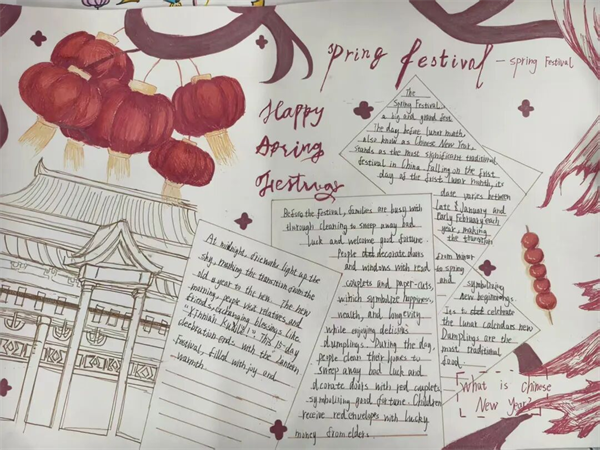 Spring Festival
— Spring Festival
Happy
Spring
Festival
The
Spring Festival,
a big and grand fest
The day before lunar month,
also know as Chinese New Year.
Stands as the most significant traditional
festival in China. Falling on the first
day of the first lunar month, its
date varies between
late January and
early February each
year, making
the transition
from winter
to spring
and symbolizing
new beginnings.
Its to celebrate
the lunar calendars new
Dumplings are the
most traditional
food.
Before the festival, families are busy with
through cleaning to sweep away bad
luck and welcome good fortune.
People decorate doors
and windows with read
couplets and paper-cuts,
which symbolize happiness,
wealth, and longevity
while enjoying delicious
dumplings. During the day,
people clean their homes to
sweep away bad luck and
decorate doors with red couplets,
symbolizing good fortune. Children
receive red envelopes with lucky
money from elders.
At midnight, fireworks light up the
sky, marking the transition from the
old year to the new. The new
morning, people visit relatives and
friends, exchanging blessings like
"XinNian Kuaile!". This 15-day
celebration ends with the Lantern
Festival, filled with joy and
warmth.
What is Chinese
New Year?